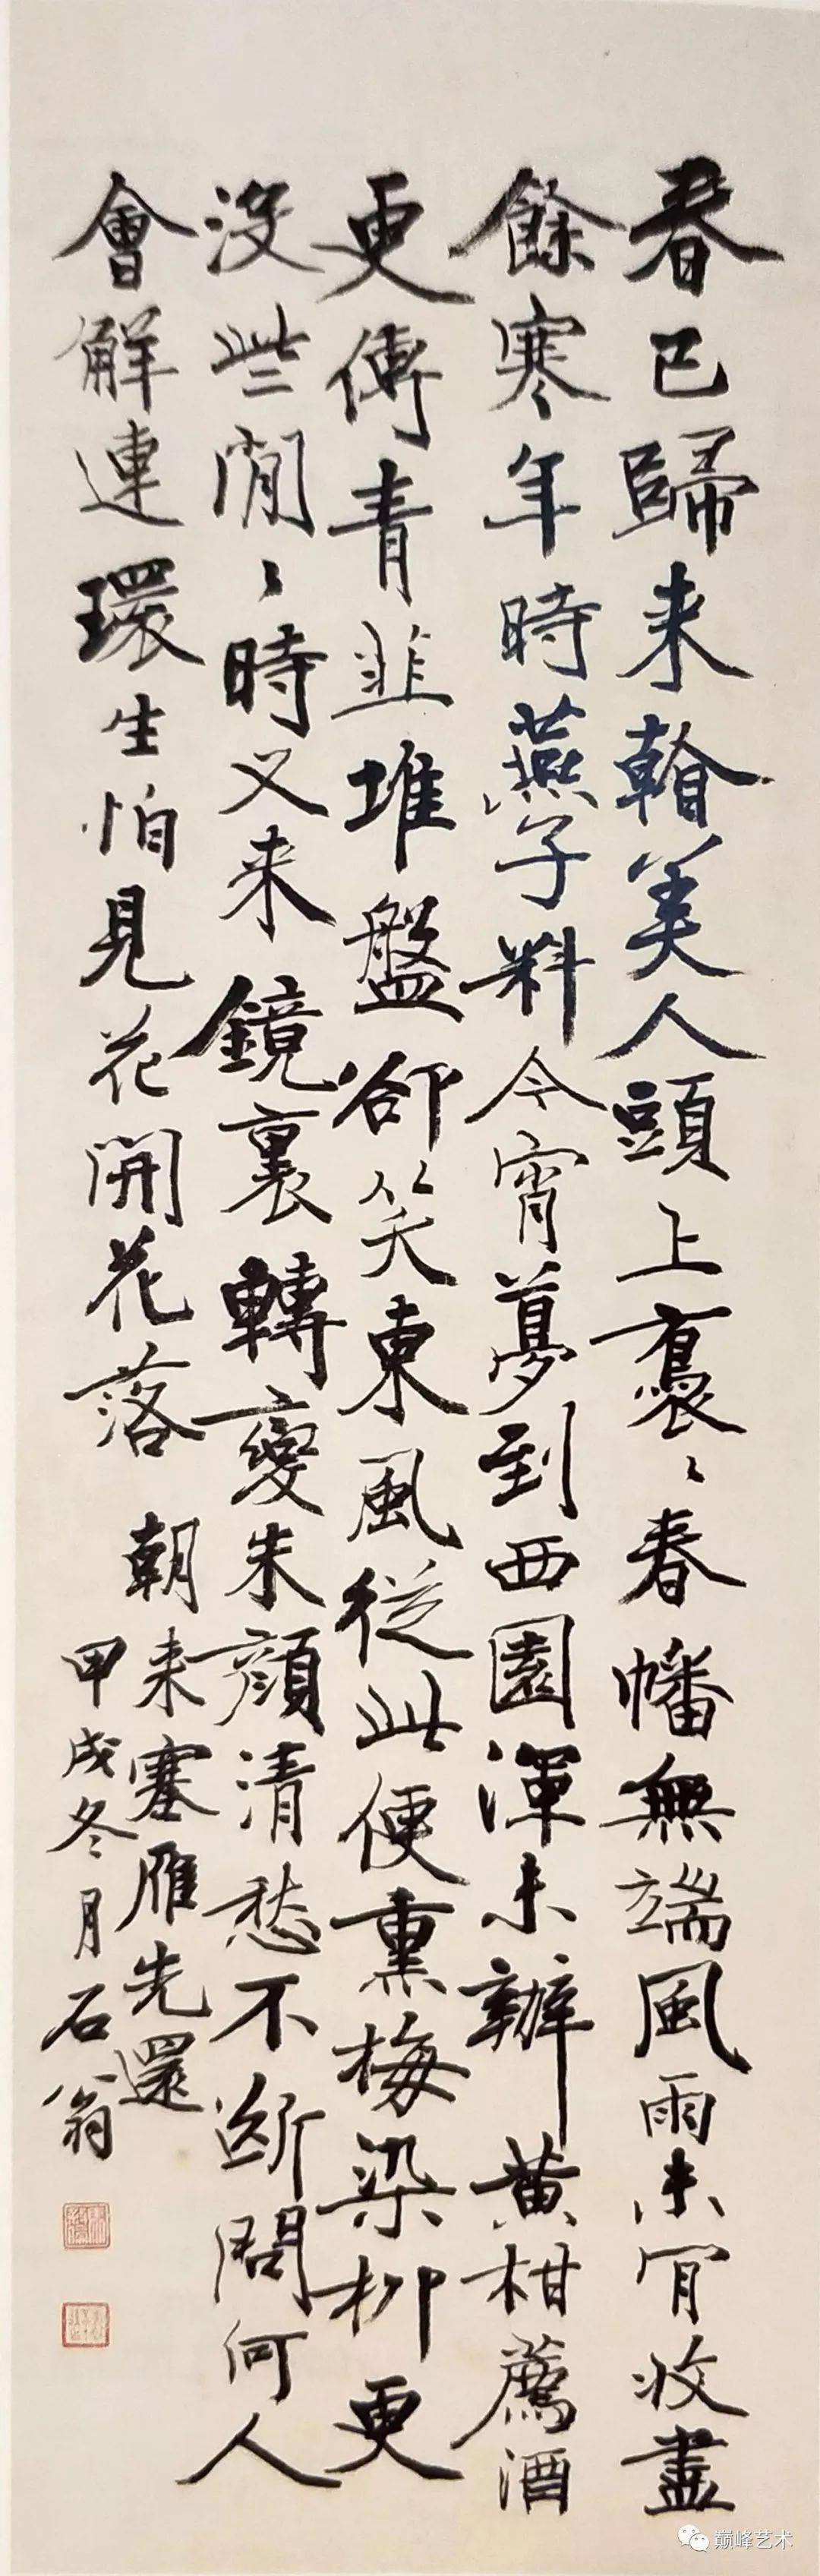 春已歸来翰美人頭上裊〻春幡無端風雨未肎收盡
餘寒年時燕子料今宵夢到西園渾未辦黄柑薦酒
更傳青韮堆盤卻笑東風從此便熏梅染柳更
没些閒〻時又来鏡裏轉變朱顔清愁不斷問何人
會解連環生怕見花開花落
朝来塞雁先還
甲戌冬月石翁
巅峰艺术